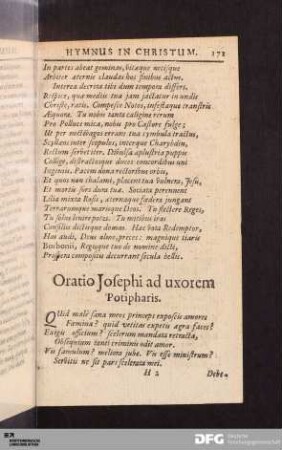 HYMNUS IN CHRISTUM. 171
In partes abeat geminas, vitæque necisque
Arbiter æternis claudas hus finibus actus.
Interea decreta tibi dum tempora differs,
Respice, quæ mediis tua jam jactatur in undis
Christe, ratis. Compesce Notos, infestaque transtris
Æquora. Tu nobis tanta caligine rerum
Pro Polluce mica, nobis pro Castore fulge;
Ut per noctivagos errans tua cymbula tractus,
Scyllam inter scopulos, interque Charybdim,
Rectum servet iter. Divulsa aplustria puppis
Collige, distractosque duces concordibus uni
Ingeniis. Pacem dona rectoribus orbis,
Et quos non thalami, placent tua vulnera, Jesu,
Et mortis furs dura tuæ. Sociata perennent
Lilia mixta Rosis, æternaque fœdera jungant
Terrarumque marisque Deus. Tu flectere Reges,
Tu solus lenire potes. Tu mentibus iras
Consiliis dictisque domas. Hæc bone Redemptor,
Hæc audi, Deus alme, preces: magnique tiaris
Borbonii, Regisque tuo de nomine dicti,
Prospera compositis decurrant secula bellis.
Oratio Josephi ad uxorem
Potipharis.
QUid malè sana meos princeps exposcis amores
Fœmina? quid vetitas expetis ægra faces?
Exigis officium? scelerum mandata retracta,
Obsequium tanti criminis odit amor.
Vis famulum? meliora jube. Vis esse ministrum?
Servitii ne sit pars scelerata mei.
H 2 Debe-
DFG Deutsche Forschungsgemeinschaft